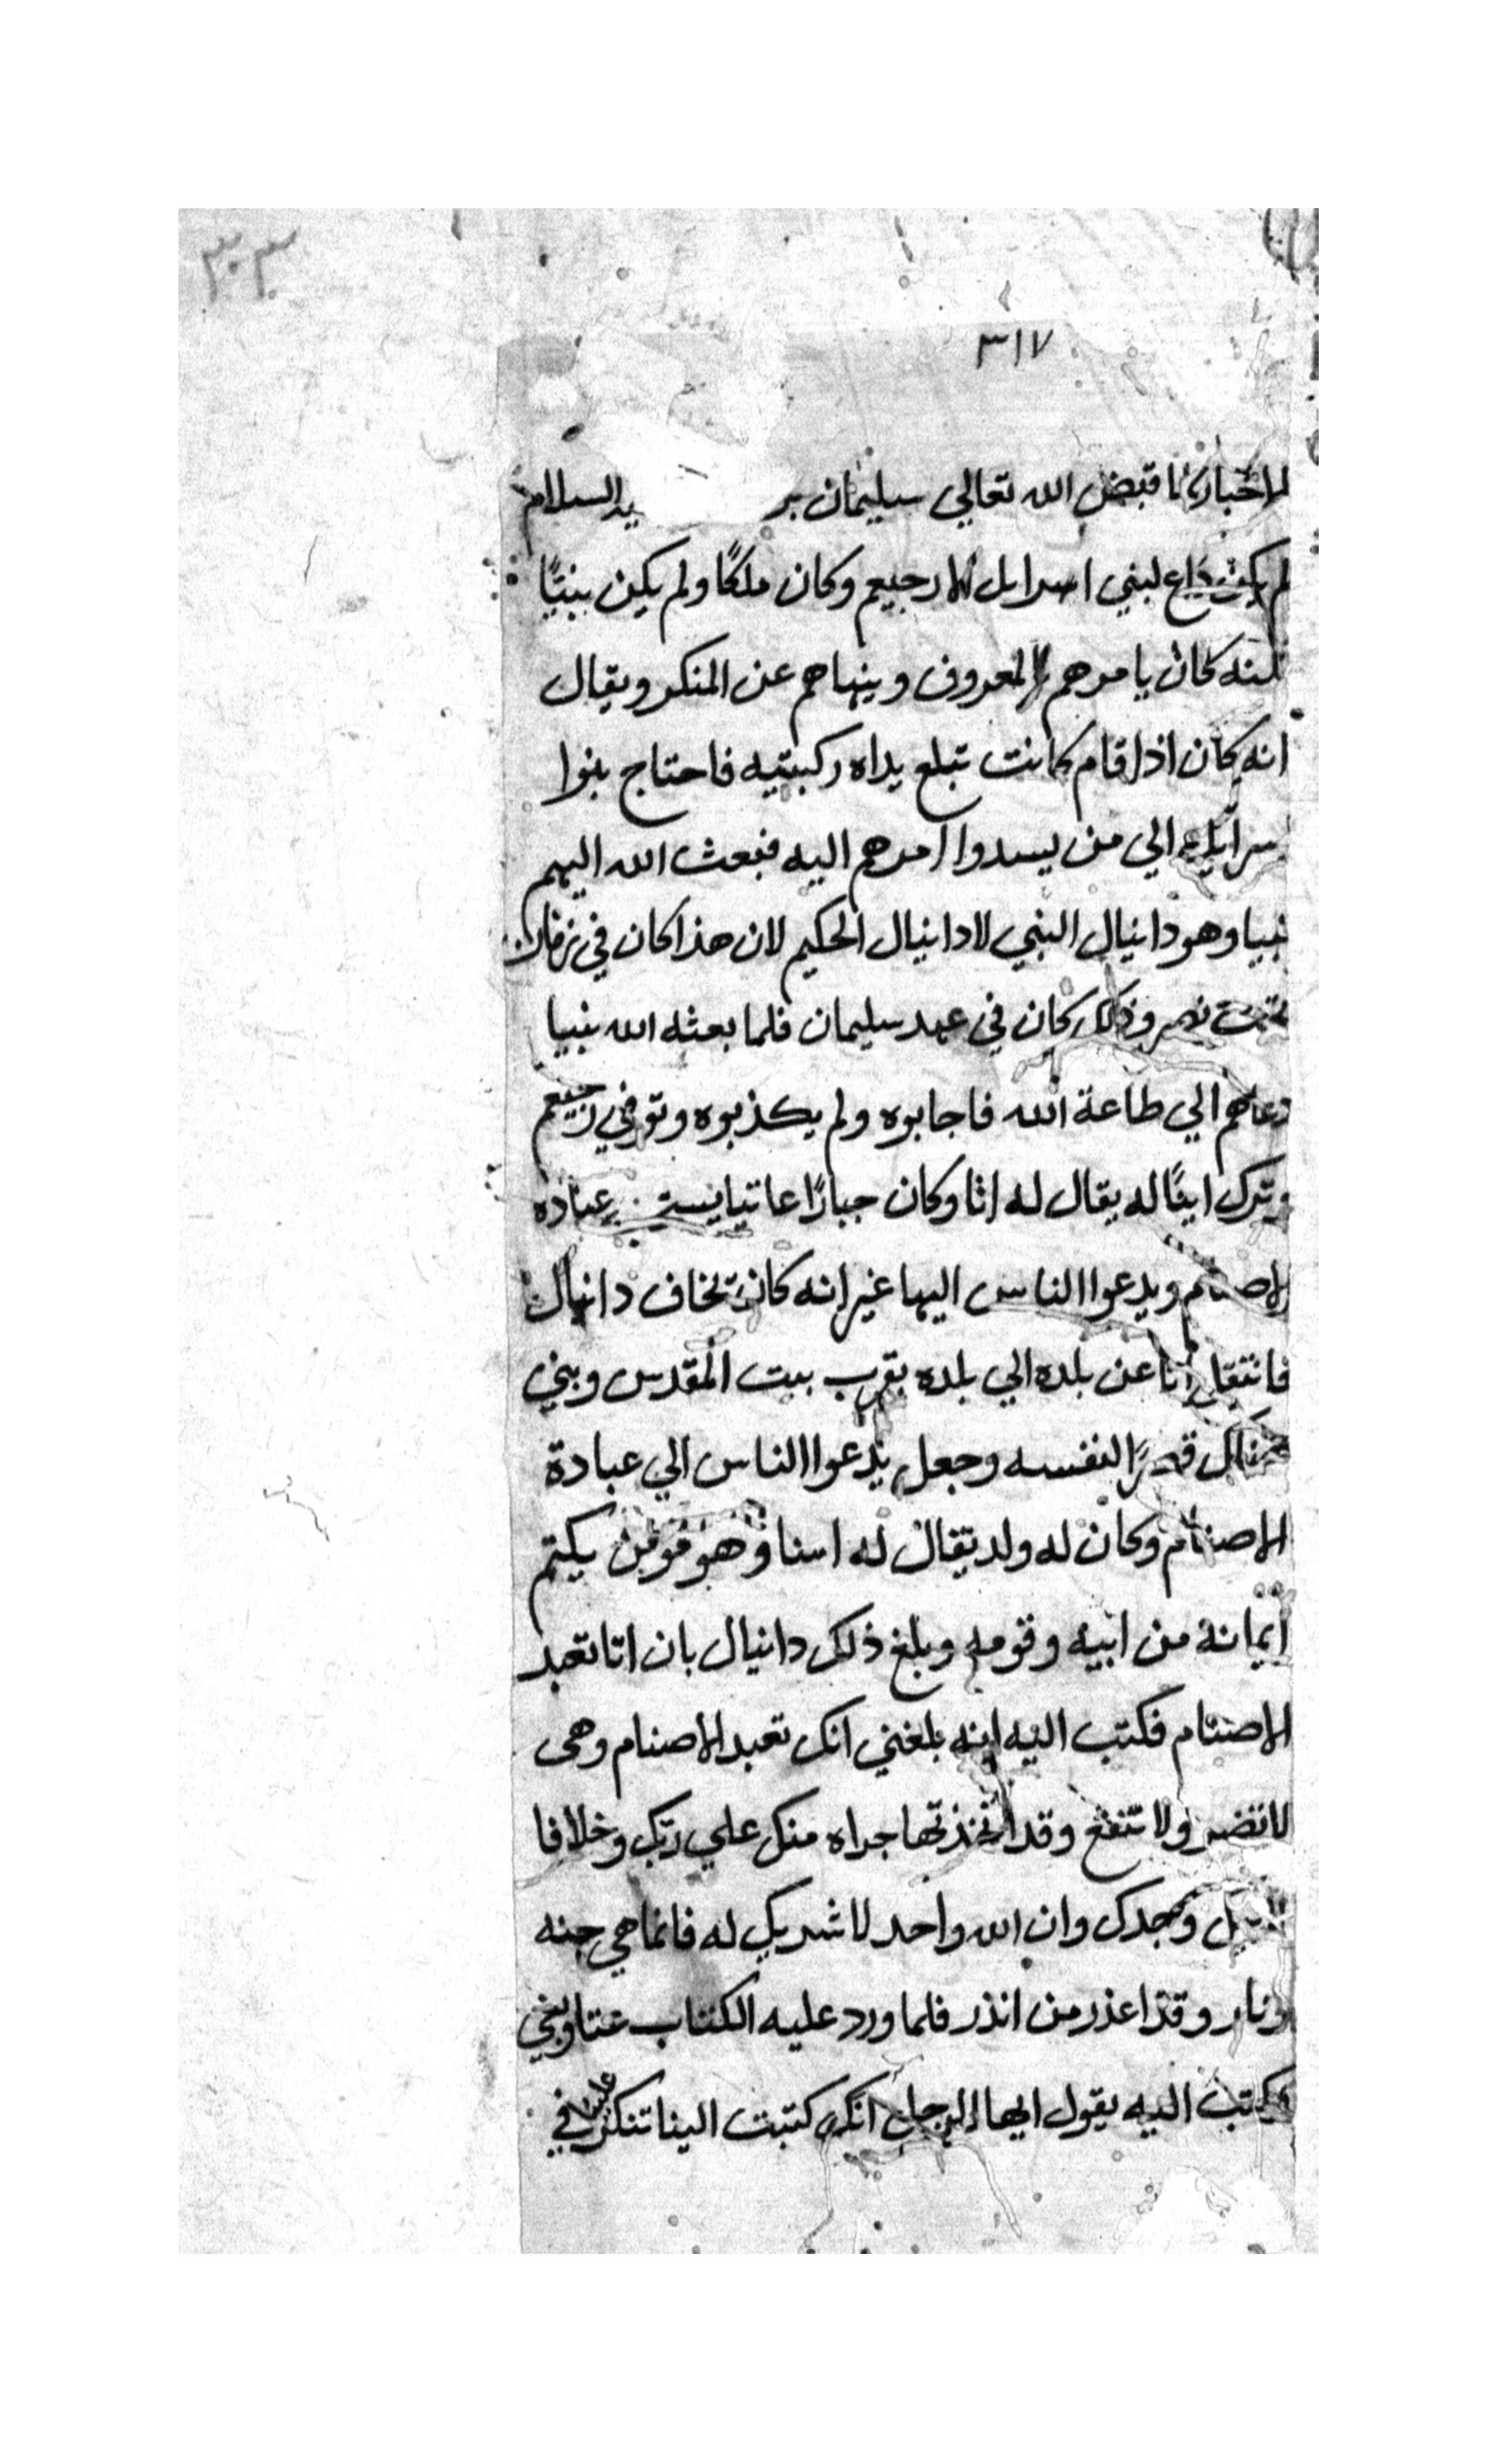 ٣٠٣
٣١٧
الاخبار لما قبض الله تعالي سليمان بن السلام
لم يكن داع لبني اسرايل الا رجيعم وكان ملكًا ولم يكن بنبيًا
لكنه كان يامرهم بالمعروف وينهاهم عن المنكر ويقال
انه كان اذا قام كانت تبلغ يداه ركبتيه فاحتاج بنوا
اسرايل الي من يسدوا امرهم اليه فبعث الله اليهم
نبيا وهو دانيال النبي لا دانيال الحكيم لان هذا كان في زمان
بخت نصر وذلك كان في عهد سليمان فلما بعثه الله نبيا
دعاهم الي طاعة الله فاجابوه ولم يكذبوه وتوفي رجيعم
وترك ابنًا له يقال له اثا وكان جبارًا عاتيا عباده
الاصنام ويدعوا الناس اليها غير انه كان يخاف دانيال
فانتقل اثا عن بلده الي بلده بقرب بيت المقدس وبني
هناك قصرًا لنفسه وجعل يدعوا الناس الي عبادة
الاصنام وكان له ولد يقال له اسنا وهو مومن يكتم
ايمانه من ابيه وقومه وبلغ ذلك دانيال بان اثا تعبد
الاصنام فكتب اليه انه بلغني انك تعبد الاصنام وهى
لا تضر ولا تنفع وقد اتخذتها جراه منك علي ربك وخلافا
وجدك وان الله واحد لا شريك له فانما هي جنه
ونار وقد اعذر من انذر فلما ورد عليه الكتاب عتا وبغي
وكتب اليه يقول ايها الرجل انك كتبت الينا تنكر في